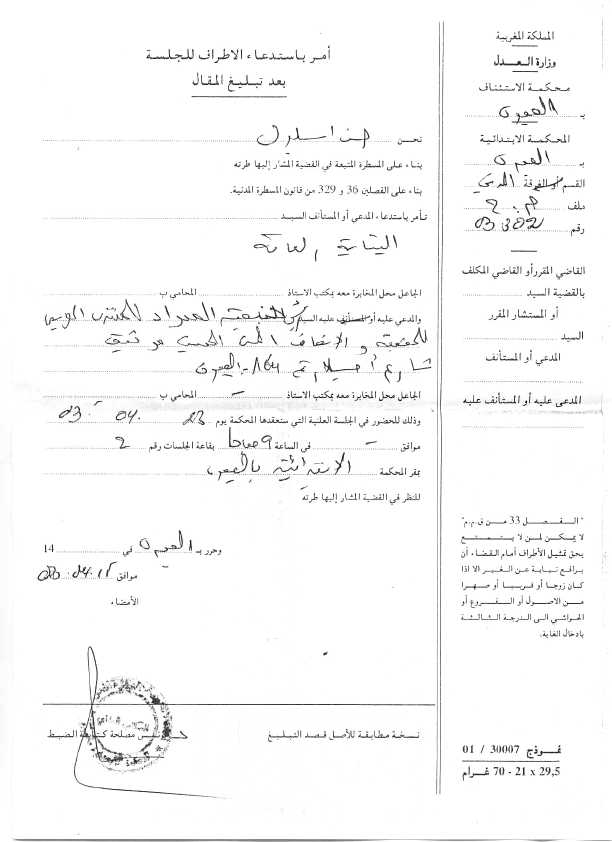 المملكة المغربية
وزارة العدل
محكمة الاستئناف
بـ العيون
المحكمة الابتدائية
بـ العيون
القسم أو الغرفة المدني
ملف
رقم 03/302
القاضي المقرر أو القاضي المكلف
بالقضية السيد
أو المستشار المقرر
السيد
المدعي أو المستأنف
المدعى عليه أو المستأنف عليه
"الفصل 33 من ق.م.م"
لا يمكن لمن لا يتمتع
بحق تمثيل الأطراف أمام القضاء أن
يرافع نيابة عن الغير الا اذا
كان زوجا أو قريبا أو صهرا
من الاصول أو الفروع أو
الحواشي الى الدرجة الثالثة
بإدخال الغاية.
نموذج 30007 / 01
29,5 x 21 - 70 غرام
أمر باستدعاء الاطراف للجلسة
بعد تبليغ المقال
نحن
بناء على المسطرة المتبعة في القضية المشار إليها طرته
بناء على الفصلين 36 و 329 من قانون المسطرة المدنية.
نأمر باستدعاء المدعي أو المستأنف السيد
النيابة العامة
الجاعل محل المخابرة معه بمكتب الاستاذ المحامي ب
والمدعى عليه أو المستأنف عليه السيد
للحقيقة و الإنصاف
شارع رقم 164 - العيون
الجاعل محل المخابرة معه بمكتب الاستاذ - المحامي ب
وذلك للحضور في الجلسة العلنية التي ستعقدها المحكمة يوم 23 . 04 . 03
موافق - في الساعة 9 صباحا بقاعة الجلسات رقم 2
بمقر المحكمة الابتدائية بالعيون
للنظر في القضية المشار إليها طرته
وحرر بـ العيون في 14
موافق
الأمضاء
نسخة مطابقة للأصل قصد التبليغ
رئيس مصلحة كتابة الضبط